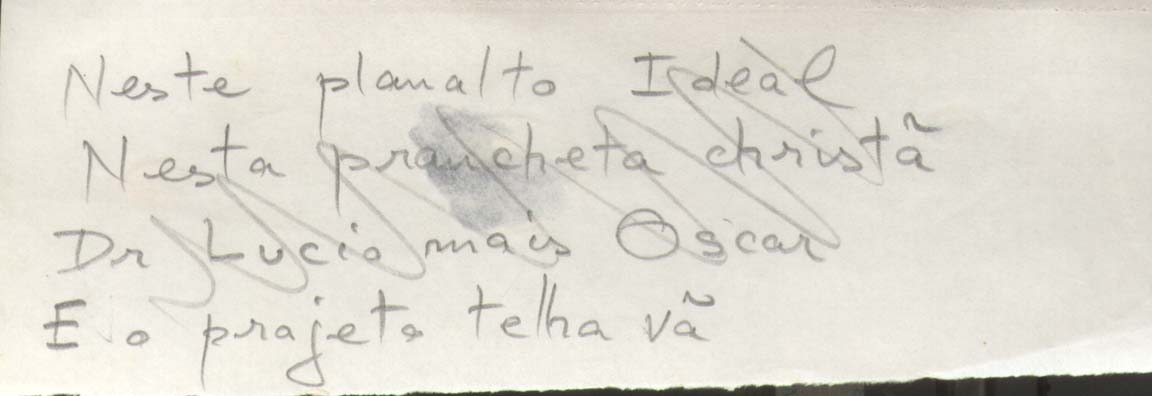 Neste planalto Ideal
Nesta prancheta christã
Dr Lucio mais Oscar
E o projeto telha vã